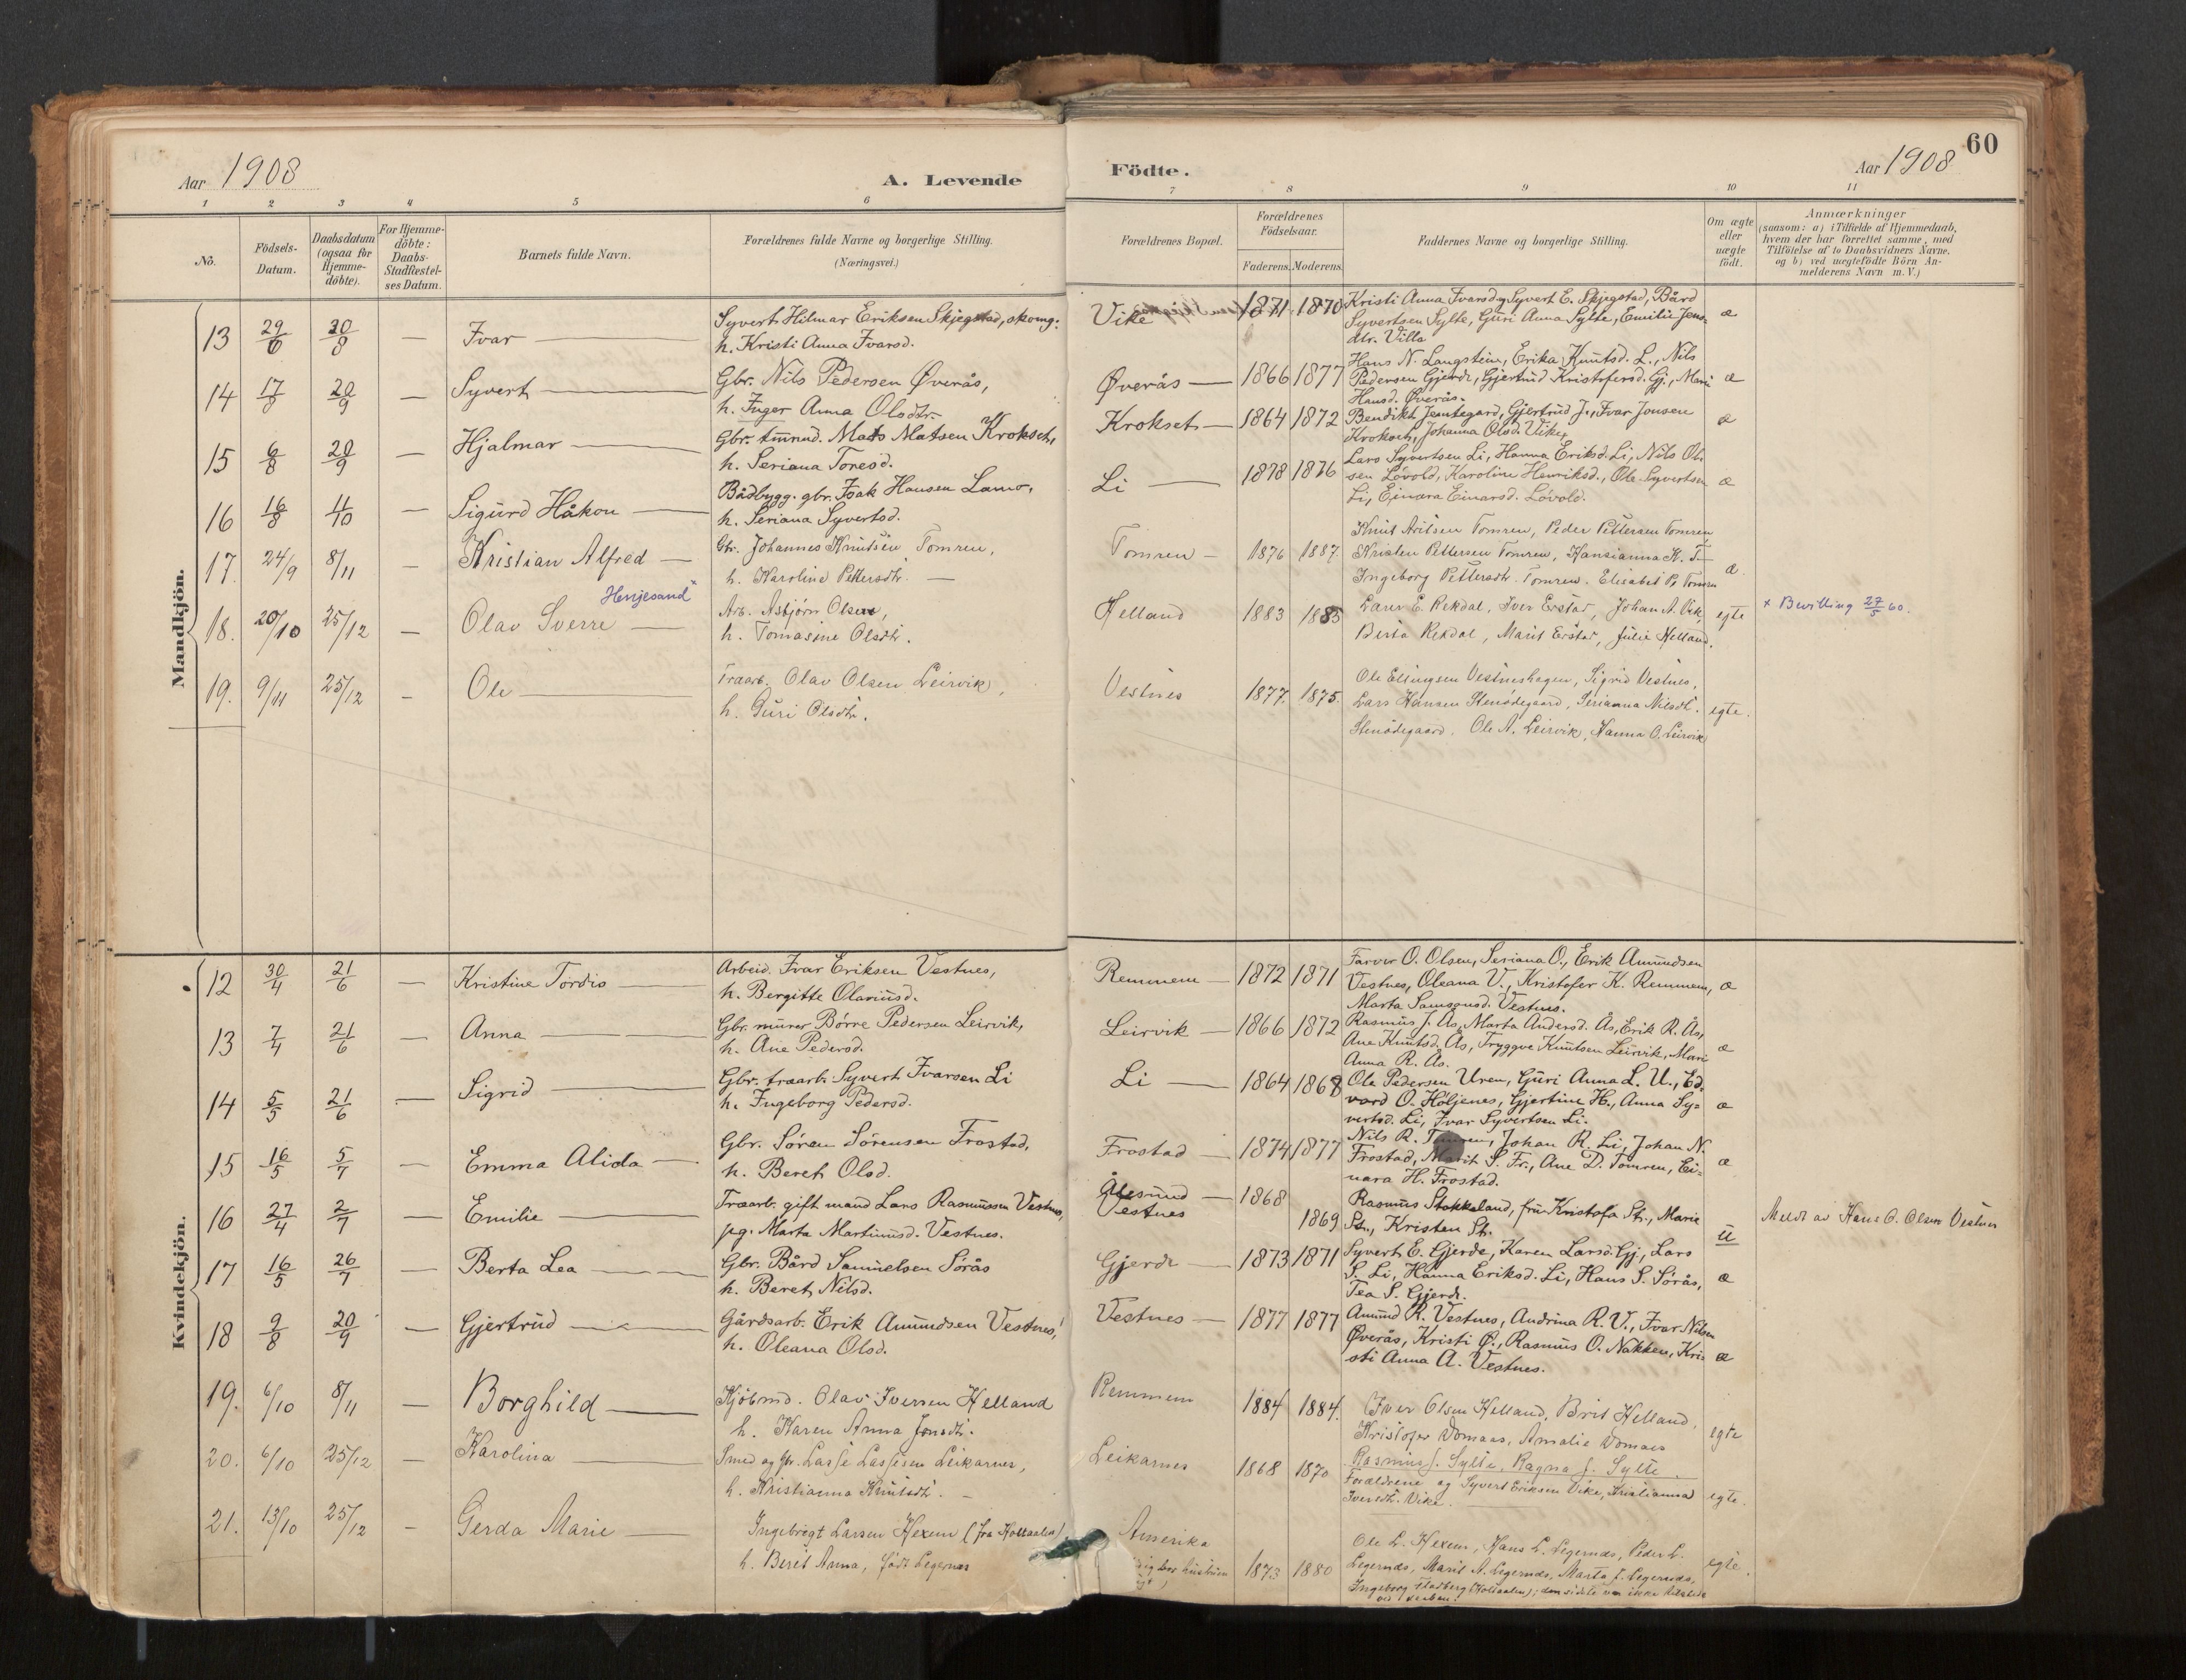 60
Aar 1908
A. Levende Födte.
Aar 1908
1 2 3 4 5 6 7 8 9 10 11
No.
Födsels-Datum.
Daabsdatum (ogsaa for Hjemme-döbte).
For Hjemme-döbte: Daabs-Stadfæstel-ses Datum.
Barnets fulde Navn.
Forældrenes fulde Navne og borgerlige Stilling.
(Næringsvei.)
Forældrenes Bopæl.
Forældrenes Födselsaar.
Faderens. Moderens.
Faddernes Navne og borgerlige Stilling.
Om ægte eller uægte födt.
Anmærkninger
(saasom: a) i Tilfælde af Hjemmedaab,
hvem der har forrettet samme, med
Tilföielse af to Daabsvidners Navne.
og b) ved uægtefödte Börn An-
melderens Navn m. V.)
Mandkjön.
13 29/6 30/8 — Ivar — Syvert Hilmar Eriksen Skjegstad, skomg. Vike 1871 1870 Kristi Anna Ivarsd., Syvert E. Skjegstad, Bård æ
h. Kristi Anna Ivarsd. Syvertsen Sylte, Guri Anna Sylte, Emilie Jens-
dtr. Villa
14 17/8 20/9 — Syvert — Gbr. Nils Pedersen Øverås, Øverås — 1866 1877 Hans N. Langstein, Erika Knutsd. L., Nils æ
h. Inger Anna Olsdtr. Pedersen Gjerde, Gjertrud Kristofersd. Gj., Marie
Hansd. Øverås.
15 6/8 20/9 — Hjalmar — Gbr. tmrnd. Mats Matsen Krokset, Krokset — 1864 1872 Bendikt Jemtegard, Gjertrud J., Ivar Jonsen æ
h. Seriana Toresd. Krokset, Johanna Olsd. Vike,
16 16/8 4/10 — Sigurd Håkon — Bådbygg. gbr. Isak Hansen Lamo, Li — 1878 1876 Lars Syvertsen Li, Hanna Eriksd. Li, Nils Ol- æ
h. Seriana Syvertsd. sen Lövold, Karoline Henriksd., Ole Syvertsen
Li, Einara Einarsd. Lövold.
17. 24/9 8/11 — Kristian Alfred — Gbr. Johannes Knutsen Tomren, Tomren — 1876 1887. Knut Arilsen Tomren, Peder Pettersen Tomren æ.
h. Karoline Pettersdtr. — Kristen Pettersen Tomren, Hansianna K. T—
Ingeborg Pettersdtr. Tomren. Elisabet P. Tomren
Henjesand x
18. 20/10 25/12 — Olav Sverre — Arb. Astjörn Olsen, Helland 1883 1885 Lars E. Rekdal, Iver Erstar, Johan A. Vik, egte x Bevilling 27/5 60.
h. Tomasine Olsdtr. Berta Rekdal, Marit Erstar, Julie Helland.
19. 9/11 25/12 — Ole — Træarb. Olav Olsen Leirvik, Vestnes 1877. 1875. Ole Ellingsen Vestneshagen, Sigrid Vestnes, egte.
h. Guri Olsdtr. Lars Hansen Stenödegaard, Serianna Nilsdtr.
Stenödegaard. Ole A. Leirvik, Hanna O. Leirvik
Kvindekjön.
12 30/4 21/6 — Kristine Tordis — Arbeid. Ivar Eriksen Vestnes, Remmem — 1872 1871 Farver O. Olsen, Seriana O., Erik Amundsen æ
h. Bergitte Olariusd. Vestnes, Oleana V., Kristofer K. Remmem,
Marta Samsonsd. Vestnes.
13 7/4 21/6 — Anna — Gbr. murer Börre Pedersen Leirvik, Leirvik — 1866 1872 Rasmus J. Ås, Marta Andersd. Ås, Erik R. Ås, æ
h. Ane Pedersd. Ane Knutsd. Ås, Tryggve Knutsen Leirvik, Mari
Anna R. Ås.
14 5/5 21/6 — Sigrid — Gbr. træarb. Syvert Ivarsen Li Li — 1864 1868 Ole Pedersen Uren, Guri Anna L. U., Ed- æ
h. Ingeborg Pedersd. vard O. Höljenes, Gjertine H., Anna Sy-
vertsd. Li, Ivar Syvertsen Li.
15 16/5 5/7 — Emma Alida — Gbr. Sören Sörensen Frostad, Frostad — 1874 1877 Nils R. Tomren, Johan R. Li, Johan N. æ
h. Beret Olsd. Frostad, Marit S. Fr., Ane D. Tomren, Ei-
nara H. Frostad.
16 27/4 2/7 — Emilie — Træarb. gift mand Lars Rasmussen Vestnes, Ålesund — 1868 Rasmus Stokkeland, fru Kristofa St., Marie u Meldt av Hans O. Olsen Vestnes
pg. Marta Martinusd. Vestnes. Vestnes 1869 St., Kristen St.
17 16/5 26/7 — Berta Lea — Gbr. Bård Samuelsen Sörås Gjerde — 1873 1871 Syvert E. Gjerde, Karen Larsd. Gj., Lars æ
h. Beret Nilsd. S. Li, Hanna Eriksd. Li, Hans S. Sörås,
Tea S. Gjerde.
18 9/8 20/9 — Gjertrud — Gårdsarb. Erik Amundsen Vestnes, Vestnes — 1877 1877 Amund R. Vestnes, Andrina R. V., Ivar Nilsen æ
h. Oleana Olsd. Øverås, Kristi Ø., Rasmus O. Nakken, Kri-
sti Anna A. Vestnes.
19. 6/10 8/11 — Borghild — Kjöbmd. Olav Iversen Helland Remmem 1884 1884. Iver Olsen Helland, Brit Helland, egte
h. Karen Anna Jonsdtr. Kristofer Vomaas, Amalie Vomaas
20. 6/10 25/12 — Karolina — Smed og gbr. Lasse Lassesen Leikarnes, Leikarnes 1868 1870 Rasmus J. Sylte, Ragna J. Sylte. egte.
h. Kristianna Knutsdtr. — Forældrene og Syvert Eriksen Vike, Kristianna
Iversdtr. Vike.
21. 13/10 25/12 — Gerda Marie — Ingebrigt Larsen Hexem (fra Holtaalen) Amerika 1873 1880 Ole L. Hexem, Hans L. Legernæs, Peder L. egte.
h. Berit Anna, födt Legernæs Legernæs, Marit A. Legernæs, Marta J. Legernæs,
Ingeborg Stadberg (Holtaalen); den sidste var ikke tilstede
ved daaben.